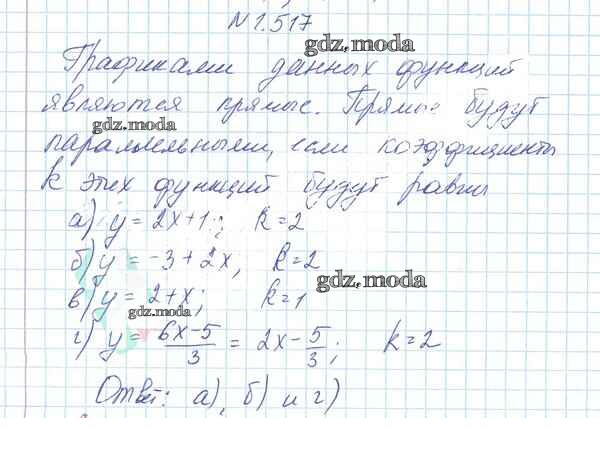 № 1.517
gdz.moda
Графиками данных функций
являются прямые. Прямые будут
gdz.moda
параллельными, если коэффициенты
k этих функций будут равны
а) y = 2x+1; k=2
б) y = -3+2x, k=2
gdz.moda
в) y = 2+x; k=1
gdz.moda
г) y = (6x-5)/3 = 2x - 5/3; k=2
Ответ: а), б) и г)